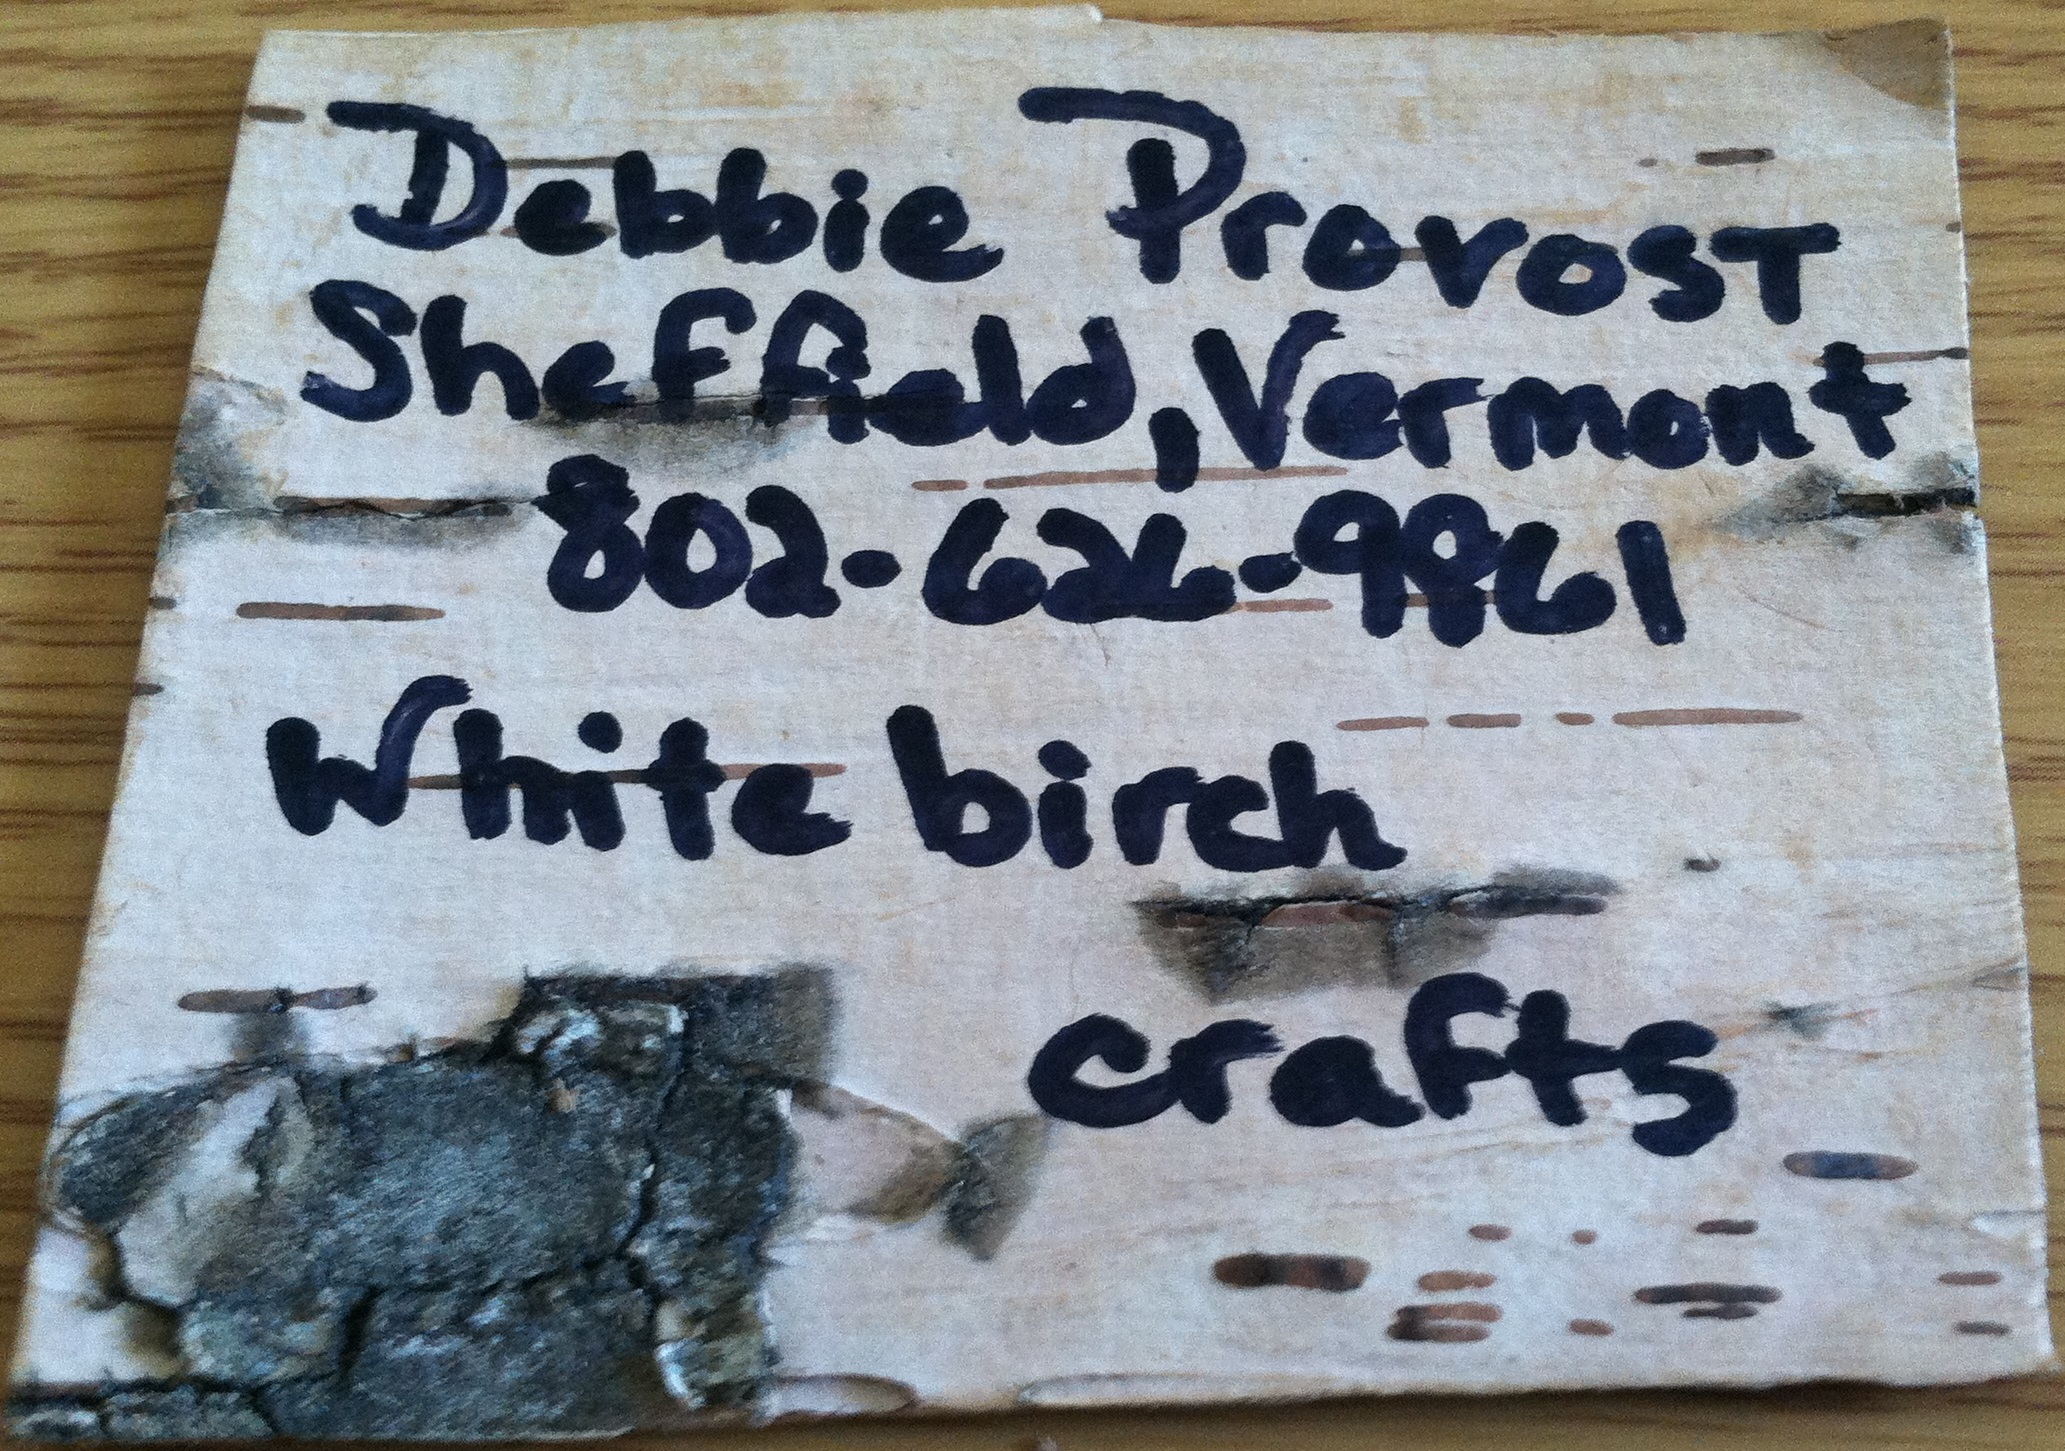 Debbie Provost
Sheffield, Vermont
802-626-9961
White birch
crafts